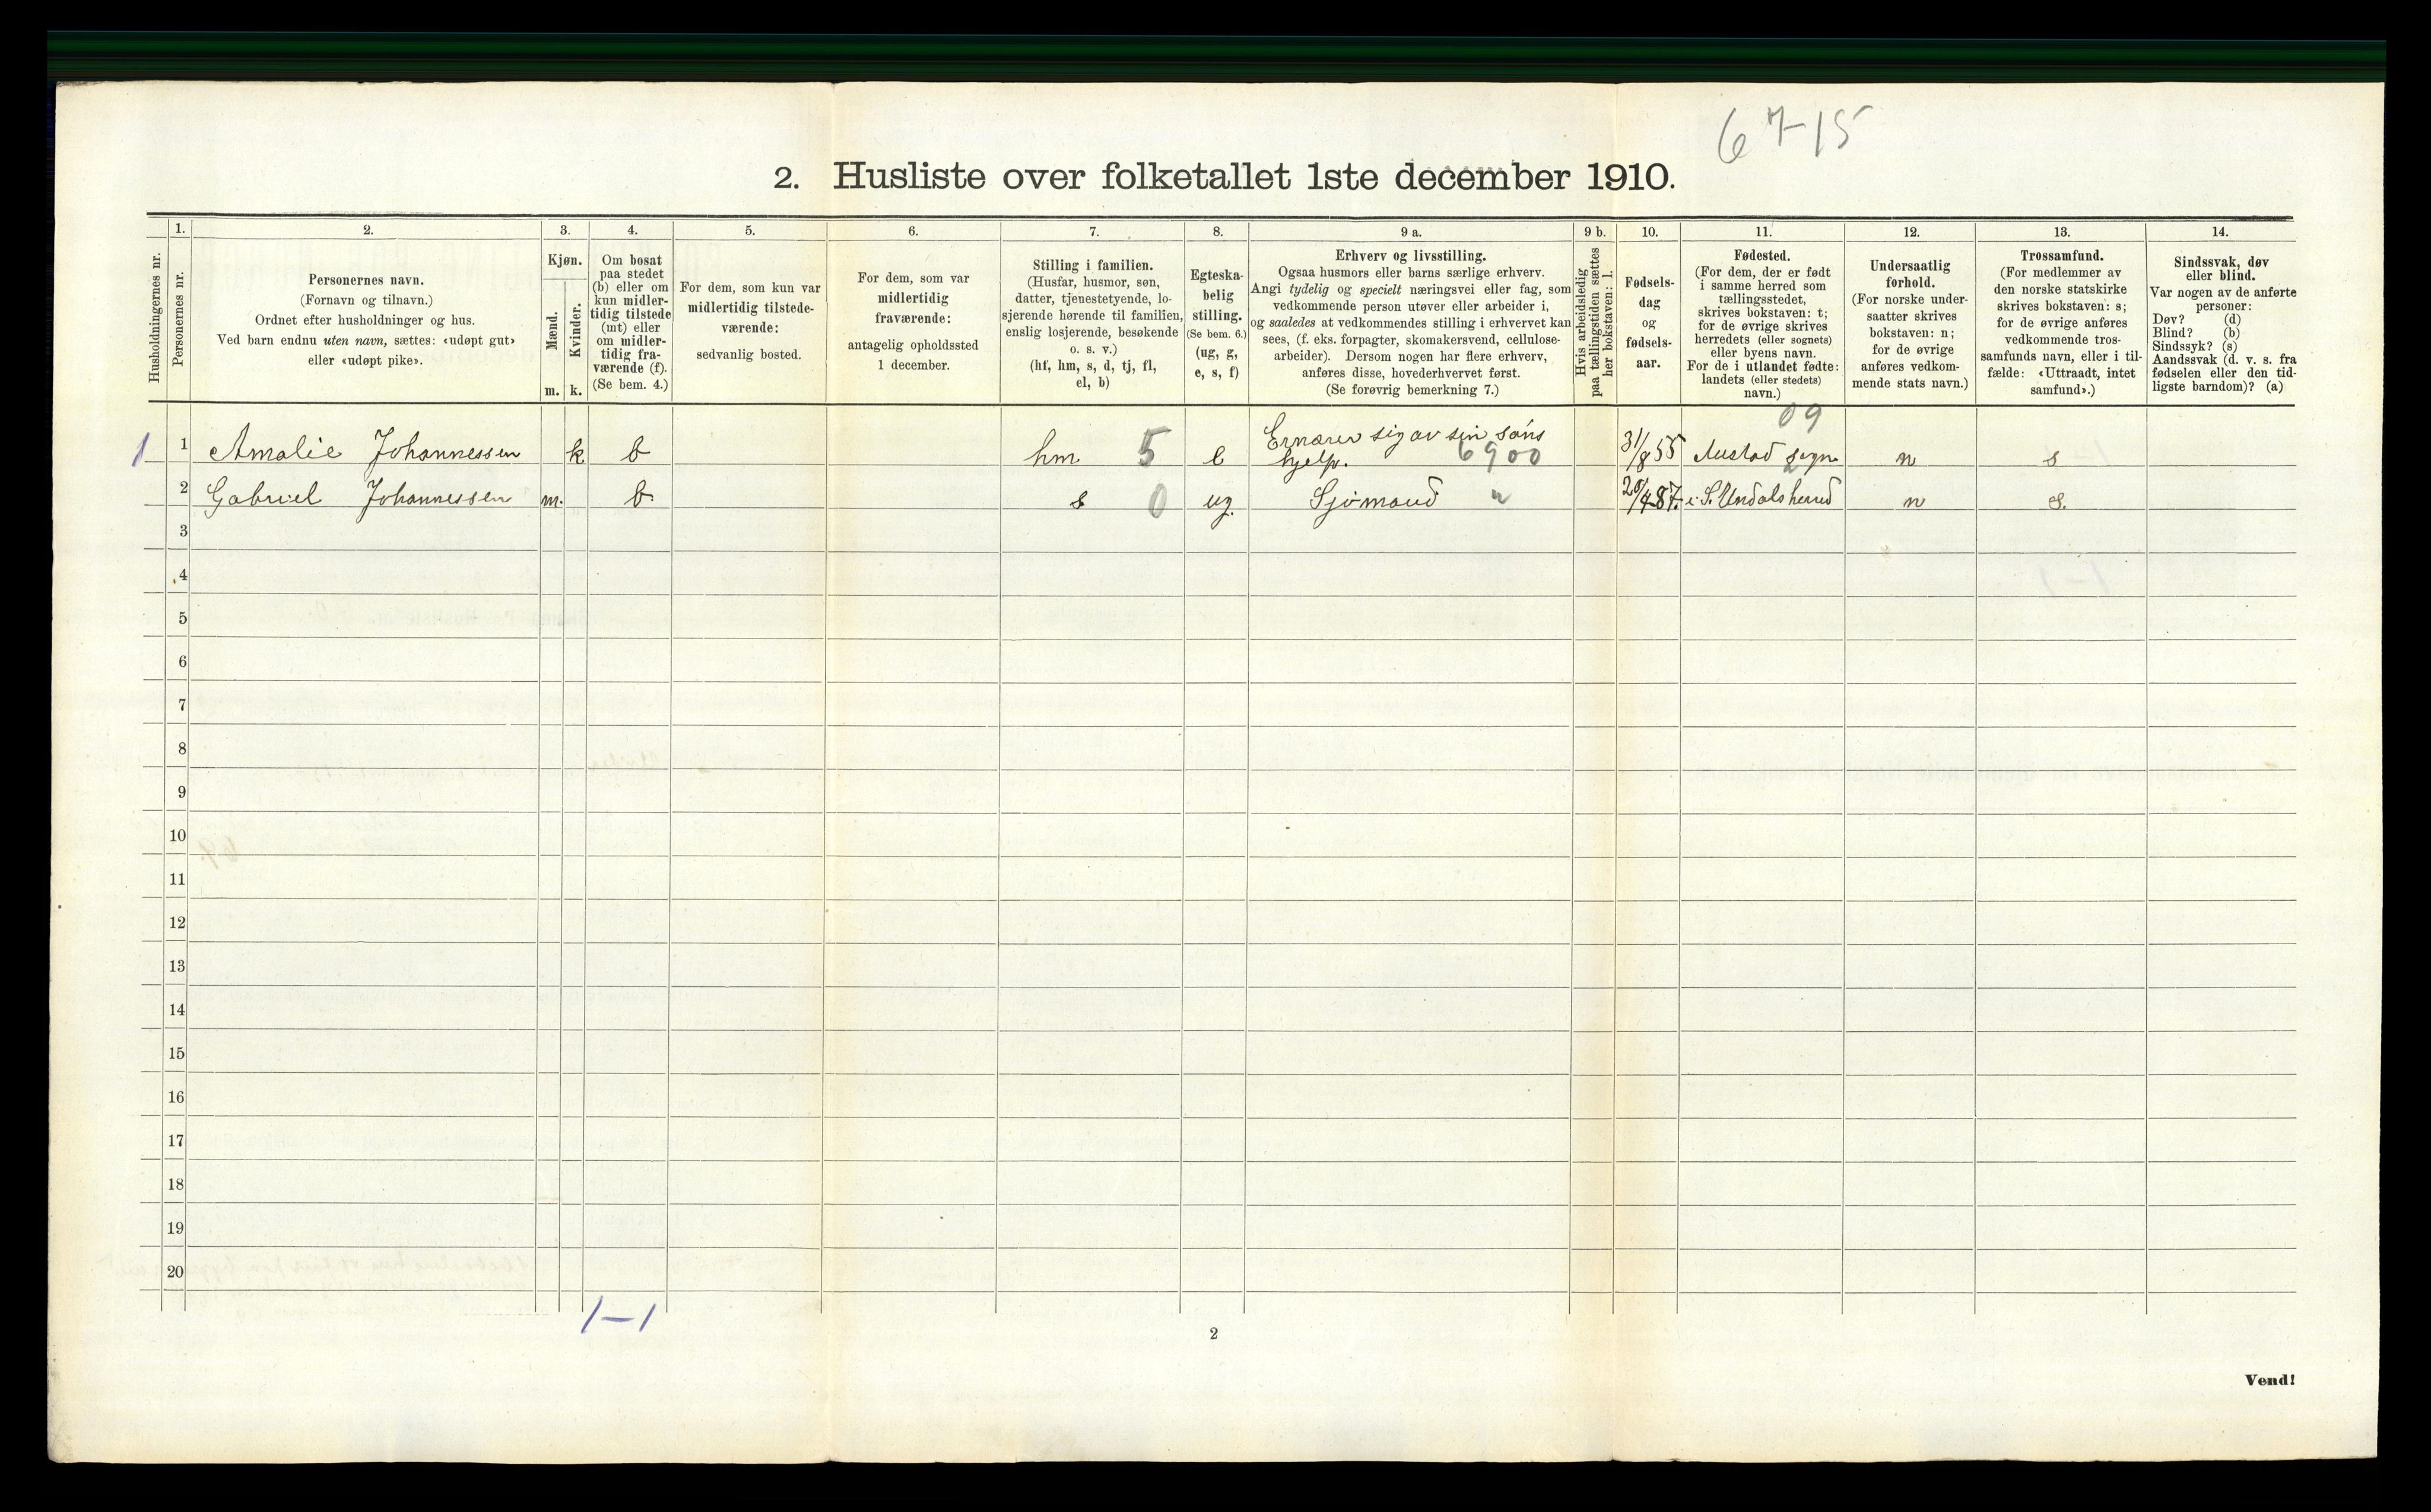 67-15
2. Husliste over folketallet 1ste december 1910.
Husholdningernes nr.
1.
Personernes nr.
2.
Personernes navn.
(Fornavn og tilnavn.)
Ordnet efter husholdninger og hus.
Ved barn endnu uten navn, sættes: «udøpt gut»
eller «udøpt pike».
3.
Kjøn.
Mænd.
Kvinder.
m. k.
4.
Om bosat
paa stedet
(b) eller om
kun midler-
tidig tilstede
(mt) eller
om midler-
tidig fra-
værende (f).
(Se bem. 4.)
5.
For dem, som kun var
midlertidig tilstede-
værende:
sedvanlig bosted.
6.
For dem, som var
midlertidig
fraværende:
antagelig opholdssted
1 december.
7.
Stilling i familien.
(Husfar, husmor, søn,
datter, tjenestetyende, lo-
sjerende hørende til familien,
enslig losjerende, besøkende
o. s. v.)
(hf, hm, s, d, tj, fl,
el, b)
8.
Egteska-
belig
stilling.
(Se bem. 6.)
(ug, g,
e, s, f)
9 a.
Erhverv og livsstilling.
Ogsaa husmors eller barns særlige erhverv.
Angi tydelig og specielt næringsvei eller fag, som
vedkommende person utøver eller arbeider i,
og saaledes at vedkommendes stilling i erhvervet kan
sees, (f. eks. forpagter, skomakersvend, cellulose-
arbeider). Dersom nogen har flere erhverv,
anføres disse, hovederhvervet først.
(Se forøvrig bemerkning 7.)
9 b.
Hvis arbeidsledig
paa tællingstiden sættes
her bokstaven: l.
10.
Fødsels-
dag
og
fødsels-
aar.
11.
Fødested.
(For dem, der er født
i samme herred som
tællingsstedet,
skrives bokstaven: t;
for de øvrige skrives
herredets (eller sognets)
eller byens navn.
For de i utlandet fødte:
landets (eller stedets)
navn.)
12.
Undersaatlig
forhold.
(For norske under-
saatter skrives
bokstaven: n;
for de øvrige
anføres vedkom-
mende stats navn.)
13.
Trossamfund.
(For medlemmer av
den norske statskirke
skrives bokstaven: s;
for de øvrige anføres
vedkommende tros-
samfunds navn, eller i til-
fælde: «Uttraadt, intet
samfund».)
14.
Sindssvak, døv
eller blind.
Var nogen av de anførte
personer:
Døv? (d)
Blind? (b)
Sindssyk? (s)
Aandssvak (d. v. s. fra
fødselen eller den tid-
ligste barndom)? (a)
09
1 1 Amalie Johannessen k b hm 5 e Ernærer sig av sin søns
hjelp. 6900 31/8 55 Austad sogn n s
2 Gabriel Johannessen m. b. s 0 ug. Sjømand 20/4 87. i S. Undals herred n s.
3
4
5
6
7
8
9
10
11
12
13
14
15
16
17
18
19
20
1-1
2
Vend!